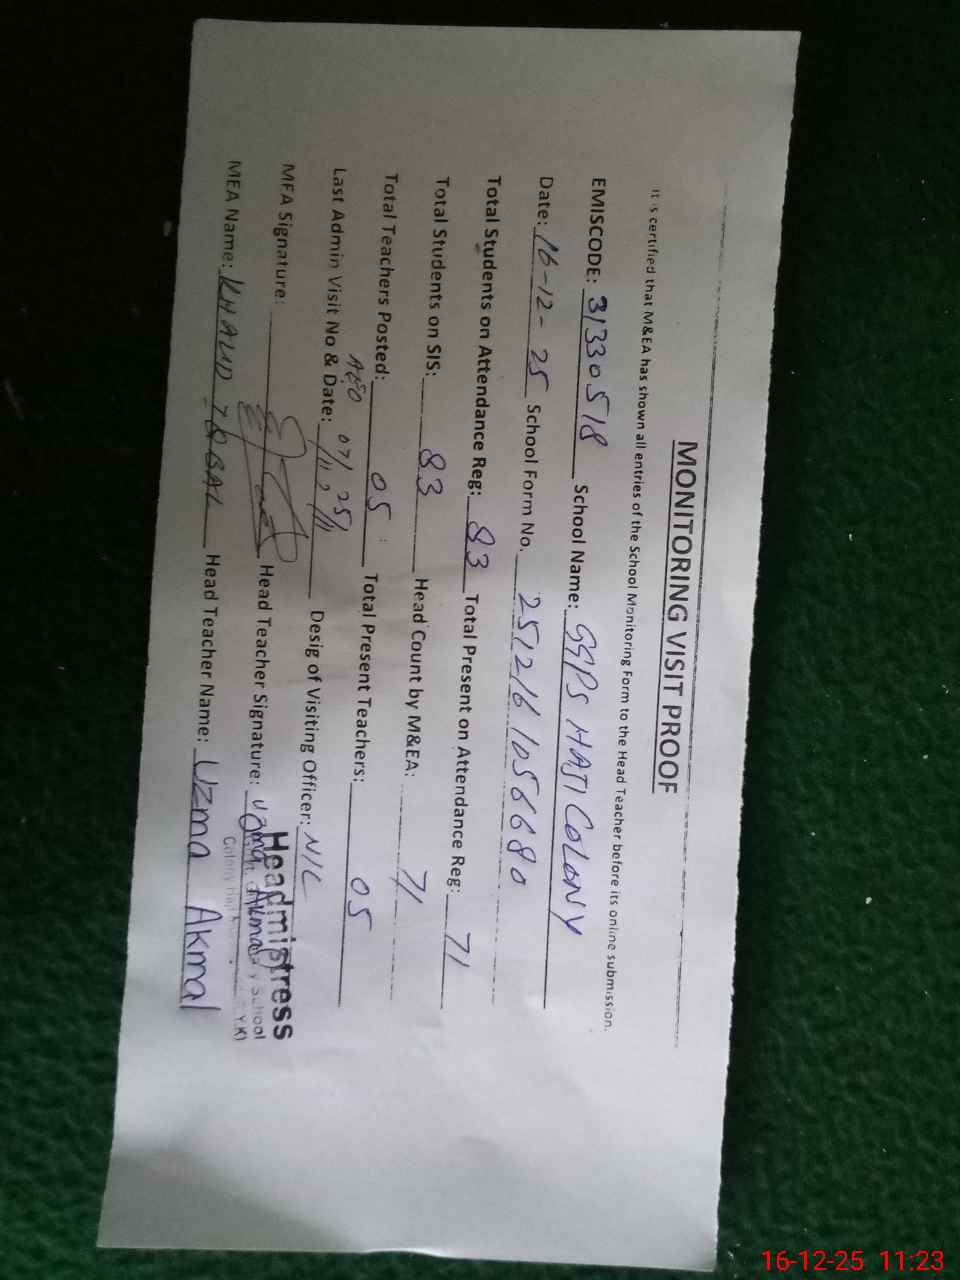 MONITORING VISIT PROOF
It is certified that M&EA has shown all entries of the School Monitoring Form to the Head Teacher before its online submission.
EMISCODE: 31330518 School Name: GGPS HAJI COLONY
Date: 16-12-25 School Form No. 2512161056680
Total Students on Attendance Reg: 83 Total Present on Attendance Reg: 71
Total Students on SIS: 83 Head Count by M&EA: 71
Total Teachers Posted: 05 Total Present Teachers: 05
AEO
Last Admin Visit No & Date: 07/11/25 Desig of Visiting Officer: NIL
MEA Signature: Head Teacher Signature: Uzma Akmal
MEA Name: KHALID IQBAL Head Teacher Name: Uzma Akmal
Headmistress
School
Colony Haji
Y.K)
16-12-25 11:23